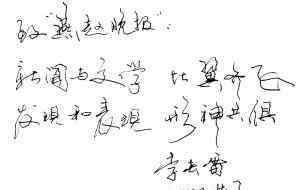 致"燕赵晚报":
新闻与文学 比翼齐飞
发现和表现 形神共俱